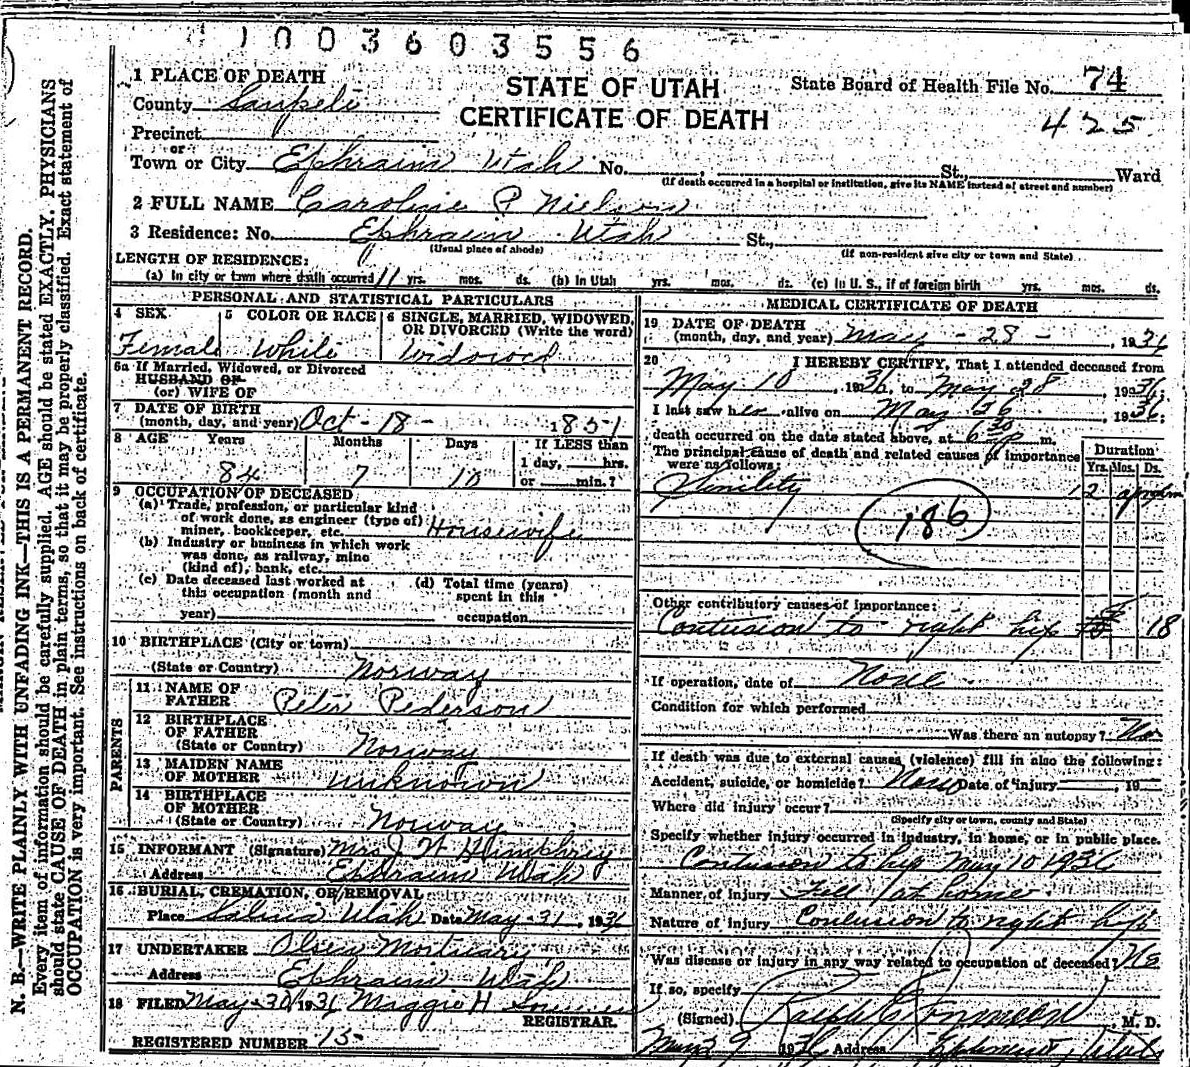 1003603556
STATE OF UTAH
CERTIFICATE OF DEATH
State Board of Health File No. 74
425
N. B.—WRITE PLAINLY WITH UNFADING INK—THIS IS A PERMANENT RECORD.
Every item of information should be carefully supplied. AGE should be stated EXACTLY. PHYSICIANS
should state CAUSE OF DEATH in plain terms, so that it may be properly classified. Exact statement of
OCCUPATION is very important. See instructions on back of certificate.
1 PLACE OF DEATH
County Sanpete
Precinct
or
Town or City Ephraim Utah No. , St., Ward
(If death occurred in a hospital or institution, give its NAME instead of street and number)
2 FULL NAME Caroline P Nielson
3 Residence: No. Ephraim Utah St.,
(Usual place of abode) (If non-resident give city or town and State)
LENGTH OF RESIDENCE:
(a) In city or town where death occurred 11 yrs. mos. ds. (b) In Utah yrs. mos. ds. (c) In U. S., if of foreign birth yrs. mos. ds.
PERSONAL AND STATISTICAL PARTICULARS
4 SEX Female
5 COLOR OR RACE White
6 SINGLE, MARRIED, WIDOWED,
OR DIVORCED (Write the word)
Widowed
6a If Married, Widowed, or Divorced
HUSBAND OF
(or) WIFE OF
7 DATE OF BIRTH
(month, day, and year) Oct - 18 - 1851
8 AGE Years Months Days If LESS than
1 day, hrs.
84 7 10 or min.?
9 OCCUPATION OF DECEASED
(a) Trade, profession, or particular kind
of work done, as engineer (type of)
miner, bookkeeper, etc. Housewife
(b) Industry or business in which work
was done, as railway, mine
(kind of), bank, etc.
(c) Date deceased last worked at
this occupation (month and
year)
(d) Total time (years)
spent in this
occupation
10 BIRTHPLACE (City or town)
(State or Country) Norway
PARENTS
11 NAME OF
FATHER Peter Pederson
12 BIRTHPLACE
OF FATHER
(State or Country) Norway
13 MAIDEN NAME
OF MOTHER unknown
14 BIRTHPLACE
OF MOTHER
(State or Country) Norway
15 INFORMANT (Signature) Mrs J W Humphrey
Address Ephraim Utah
16 BURIAL, CREMATION, OR REMOVAL
Place Salina Utah Date May-31, 1936
17 UNDERTAKER Olsen Mortuary
Address Ephraim Utah
18 FILED May-30, 1936 Maggie H
REGISTRAR.
REGISTERED NUMBER 15-
MEDICAL CERTIFICATE OF DEATH
19 DATE OF DEATH
(month, day, and year) May - 28 - , 1936
20 I HEREBY CERTIFY, That I attended deceased from
May 10, 1936, to May 28, 1936
I last saw her alive on May 26, 1936;
death occurred on the date stated above, at m.
The principal cause of death and related causes of importance
were as follows:
Duration
Yrs. Mos. Ds.
Senility 12
186
Other contributory causes of importance:
Contusion to right hip 18
If operation, date of None
Condition for which performed
Was there an autopsy? No
If death was due to external causes (violence) fill in also the following:
Accident, suicide, or homicide? None Date of injury , 19
Where did injury occur?
(Specify city or town, county and State)
Specify whether injury occurred in industry, in home, or in public place.
Contusion to hip May 10 1936
Manner of Injury Fell at home
Nature of injury Contusion to right hip
Was disease or injury in any way related to occupation of deceased? No
If so, specify
(Signed) Ralph M. D.
May 29 1936 Address Ephraim, Utah